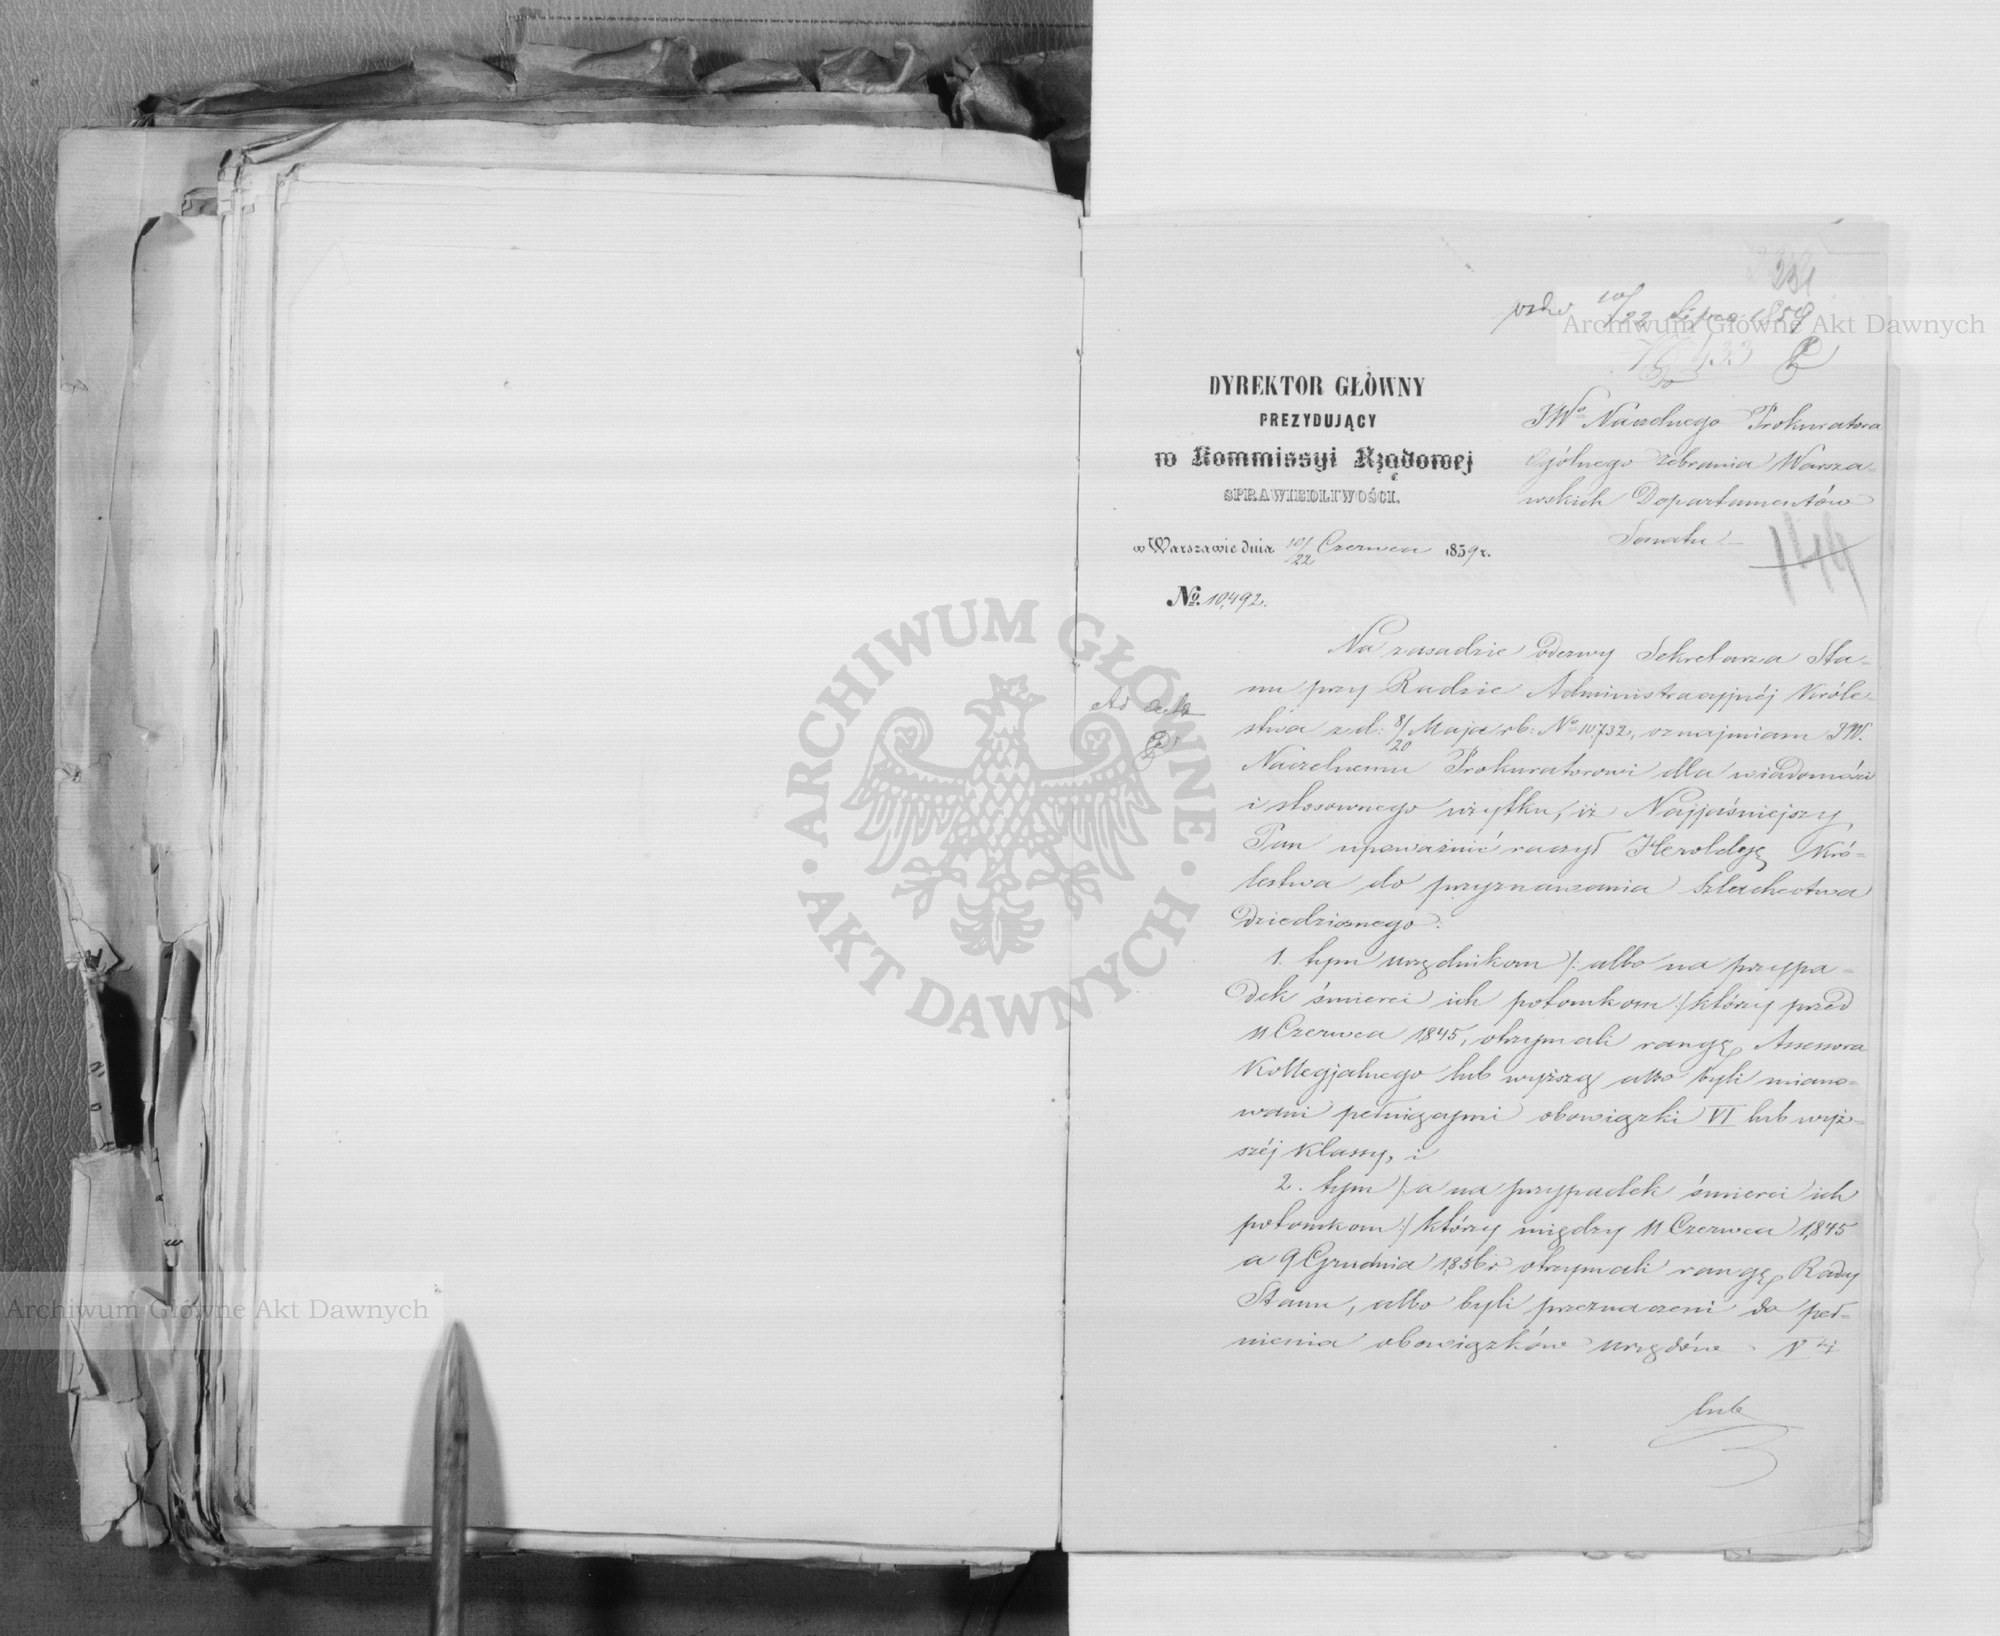 231
10/22 Lipca 1859
433
DYREKTOR GŁÓWNY
PREZYDUJĄCY
w Kommissyi Rządowej
SPRAWIEDLIWOŚCI.
w Warszawie dnia 10/22 Czerwca 1859 r.
No. 10,492.
Do
JWo Naczelnego Prokuratora
Ogólnego Zebrania Warsza-
wskich Departamentów
Senatu
144
Ad acta
Na zasadzie odezwy Sekretarza Sta-
nu przy Radzie Administracyjnéj Króle-
stwa z d: 8/20 Maja rb: No 10,732, oznajmiam JW.
Naczelnemu Prokuratorowi dla wiadomości
i stosownego użytku, iż Najjaśniejszy
Pan upoważnić raczył Heroldyę Kró-
lestwa do przyznawania szlachectwa
dziedzicznego:
1. tym urzędnikom /: albo na przypa-
dek śmierci ich potomkom :/ którzy przed
11 Czerwca 1845, otrzymali rangę Assessora
Kollegjalnego lub wyższą albo byli miano-
wani pełniącymi obowiązki VI lub wyż-
széj klassy, i
2. tym /: a na przypadek śmierci ich
potomkom :/ którzy między 11 Czerwca 1845
a 9 Grudnia 1856 r otrzymali rangę Radcy
Stanu, albo byli przeznaczeni do peł-
nienia obowiązków urzędów V éj
lub
Archiwum Główne Akt Dawnych
ARCHIWUM GŁÓWNE AKT DAWNYCH
Archiwum Główne Akt Dawnych